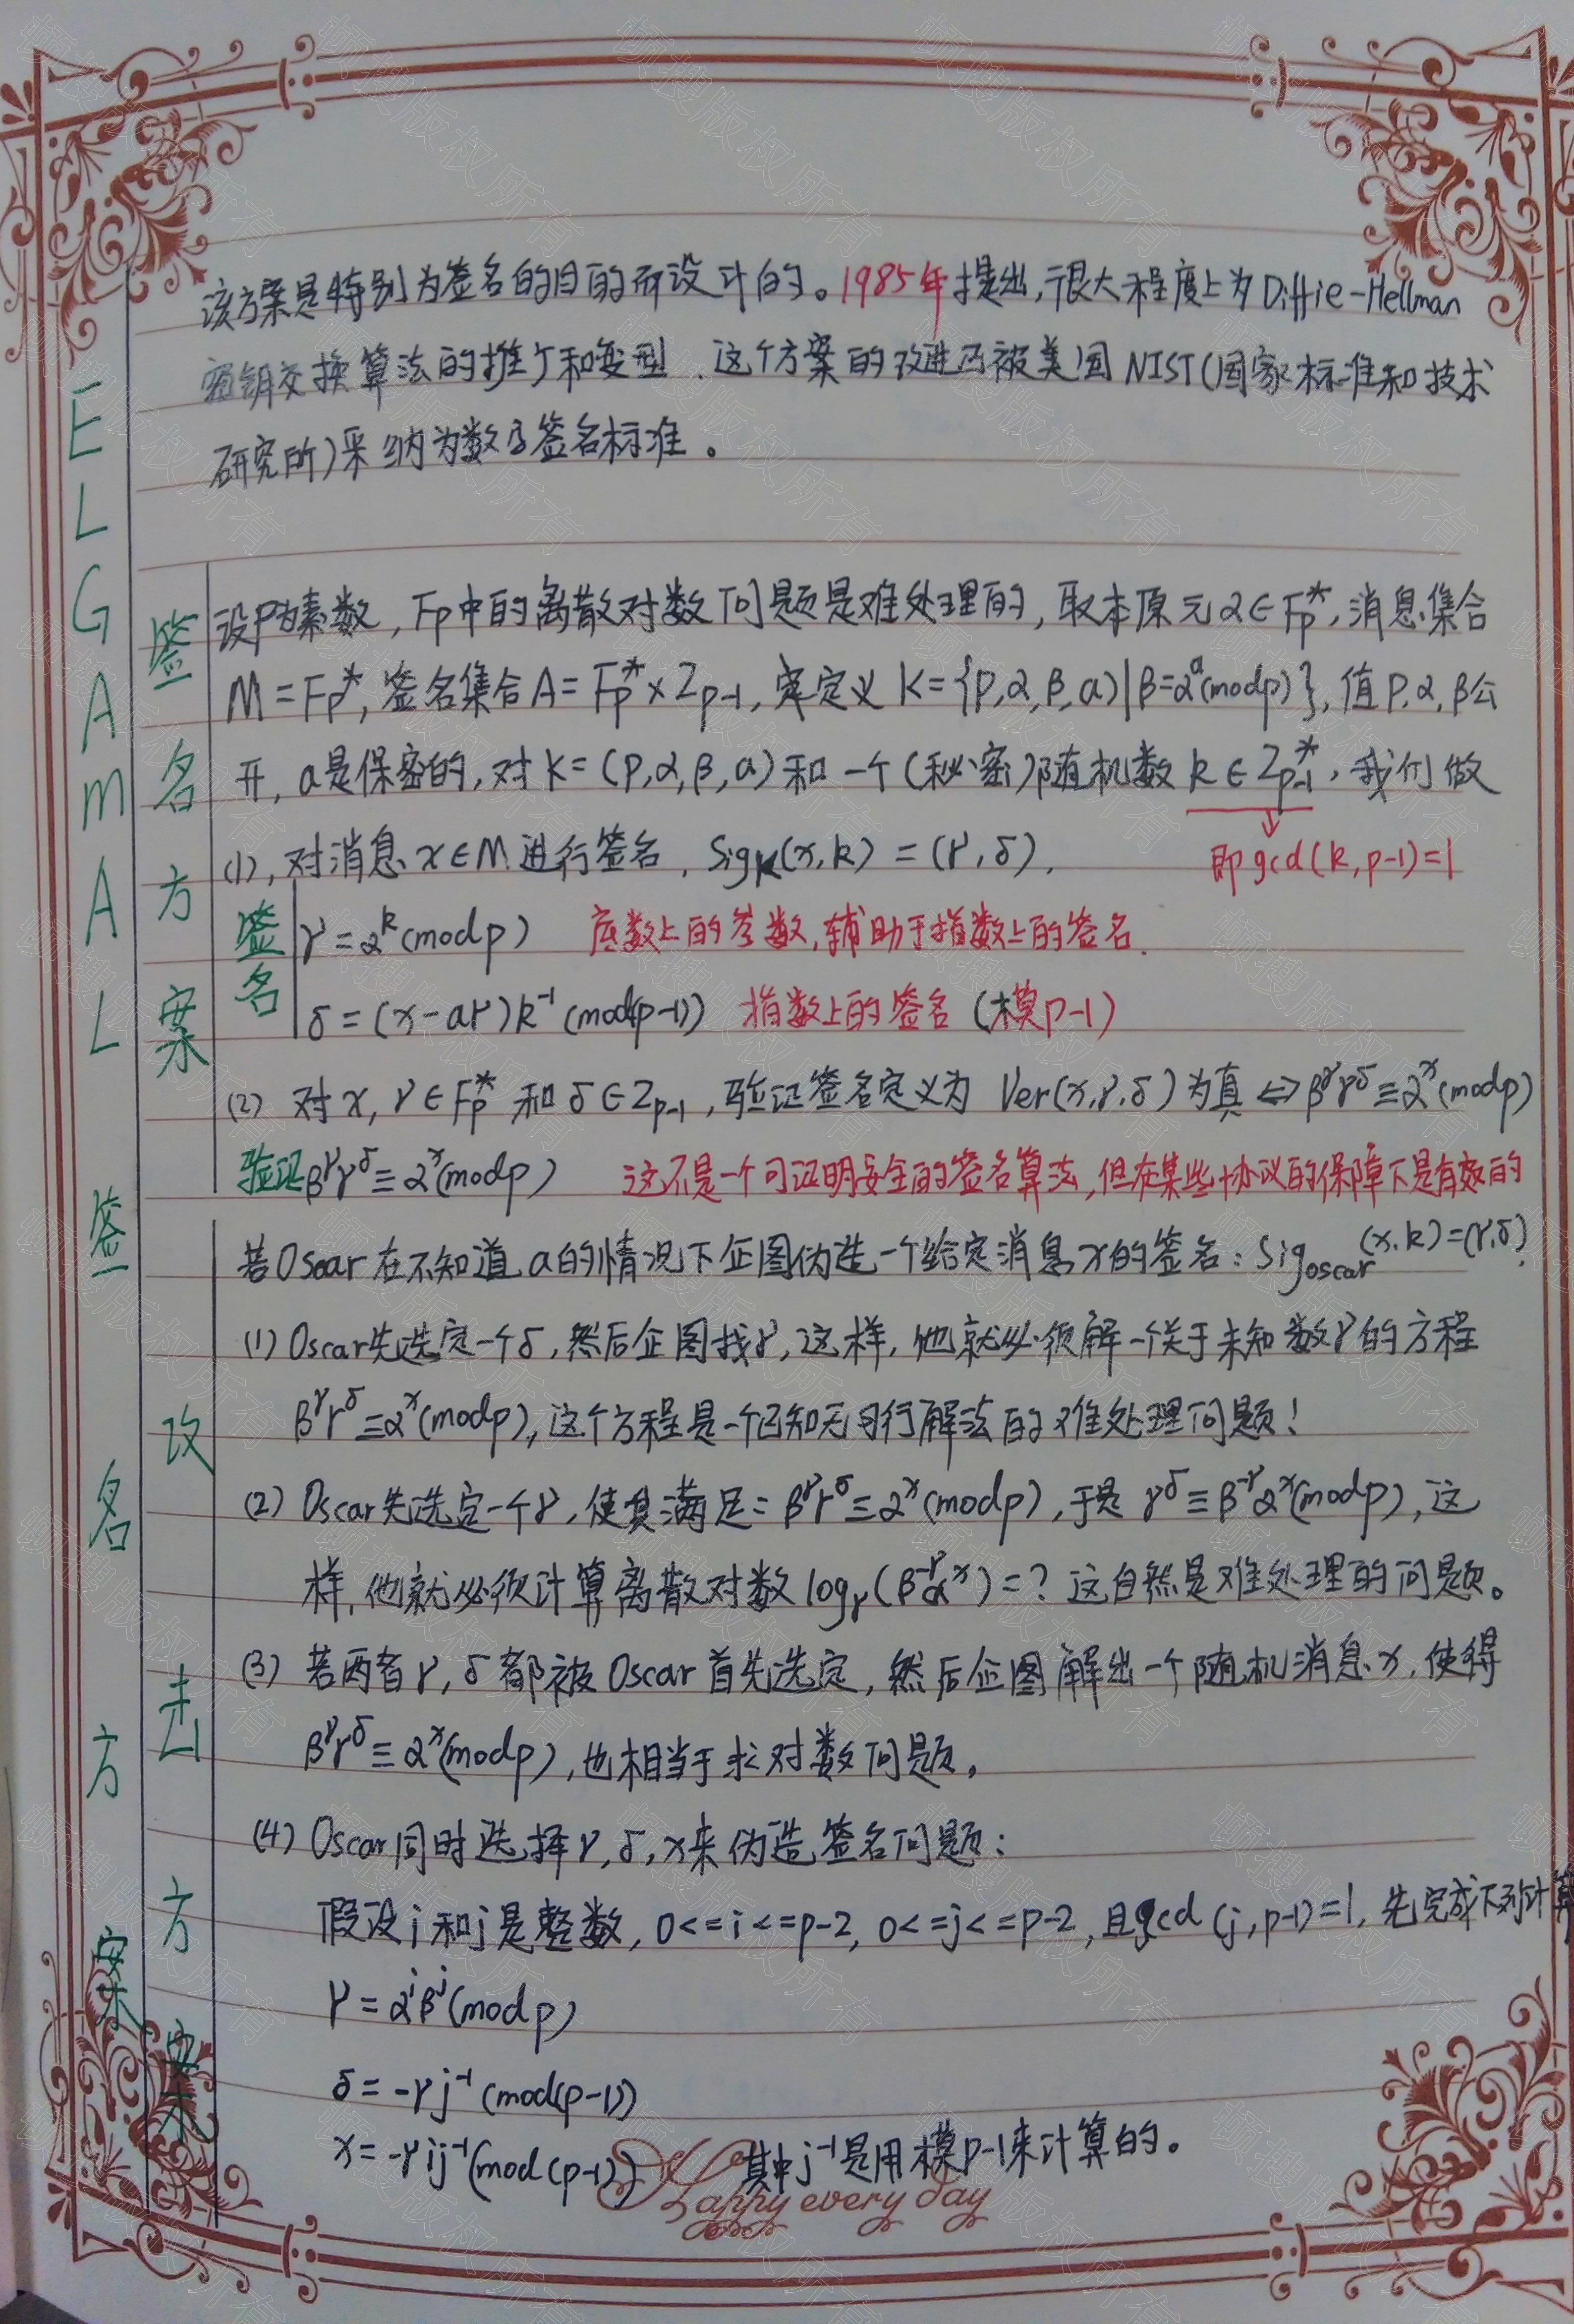 该方案是特别为签名的目的而设计的。1985年提出,很大程度上为Diffie-Hellman
密钥交换算法的推广和变型.这个方案的改进已被美国NIST(国家标准和技术
研究所)采纳为数字签名标准。
ELGAMAL签名方案
签名方案
设P为素数,Fp中的离散对数问题是难处理的,取本原元α∈Fp*,消息集合
M=Fp*,签名集合A=Fp*×Zp-1,定义K={p,α,β,a)|β=α^a(modp)},值P,α,β公
开,a是保密的,对K=(P,α,β,a)和一个(秘密)随机数k∈Zp-1*,我们做
即gcd(k,p-1)=1
(1),对消息x∈M进行签名,SigK(x,k)=(γ,δ),
签名
γ=α^k(modp) 底数上的参数,辅助于指数上的签名.
δ=(x-aγ)k^-1(mod(p-1)) 指数上的签名(模p-1)
(2) 对x,γ∈Fp*和δ∈Zp-1,验证签名定义为Ver(x,γ,δ)为真⇔β^γγ^δ≡α^x(modp)
验证β^γγ^δ≡α^x(modp) 这不是一个可证明安全的签名算法,但在某些协议的保障下是有效的
攻击方案
若Oscar在不知道a的情况下企图伪造一个给定消息x的签名:Sigoscar(x,k)=(γ,δ)
(1)Oscar先选定一个δ,然后企图找γ,这样,他就必须解一个关于未知数γ的方程
β^γγ^δ≡α^x(modp),这个方程是一个已知无可行解法的难处理问题!
(2)Oscar先选定一个γ,使其满足:β^γγ^δ≡α^x(modp),于是γ^δ≡β^-γα^x(modp),这
样,他就必须计算离散对数logγ(β^-γα^x)=?这自然是难处理的问题。
(3)若两者γ,δ都被Oscar首先选定,然后企图解出一个随机消息x,使得
β^γγ^δ≡α^x(modp),也相当于求对数问题。
(4)Oscar同时选择γ,δ,x来伪造签名问题:
假设i和j是整数,0<=i<=p-2,0<=j<=p-2,且gcd(j,p-1)=1,先完成下列计算
γ=α^iβ^j(modp)
δ=-γj^-1(mod(p-1))
x=-γij^-1(mod(p-1)) 其中j^-1是用模p-1来计算的。
Happy every day